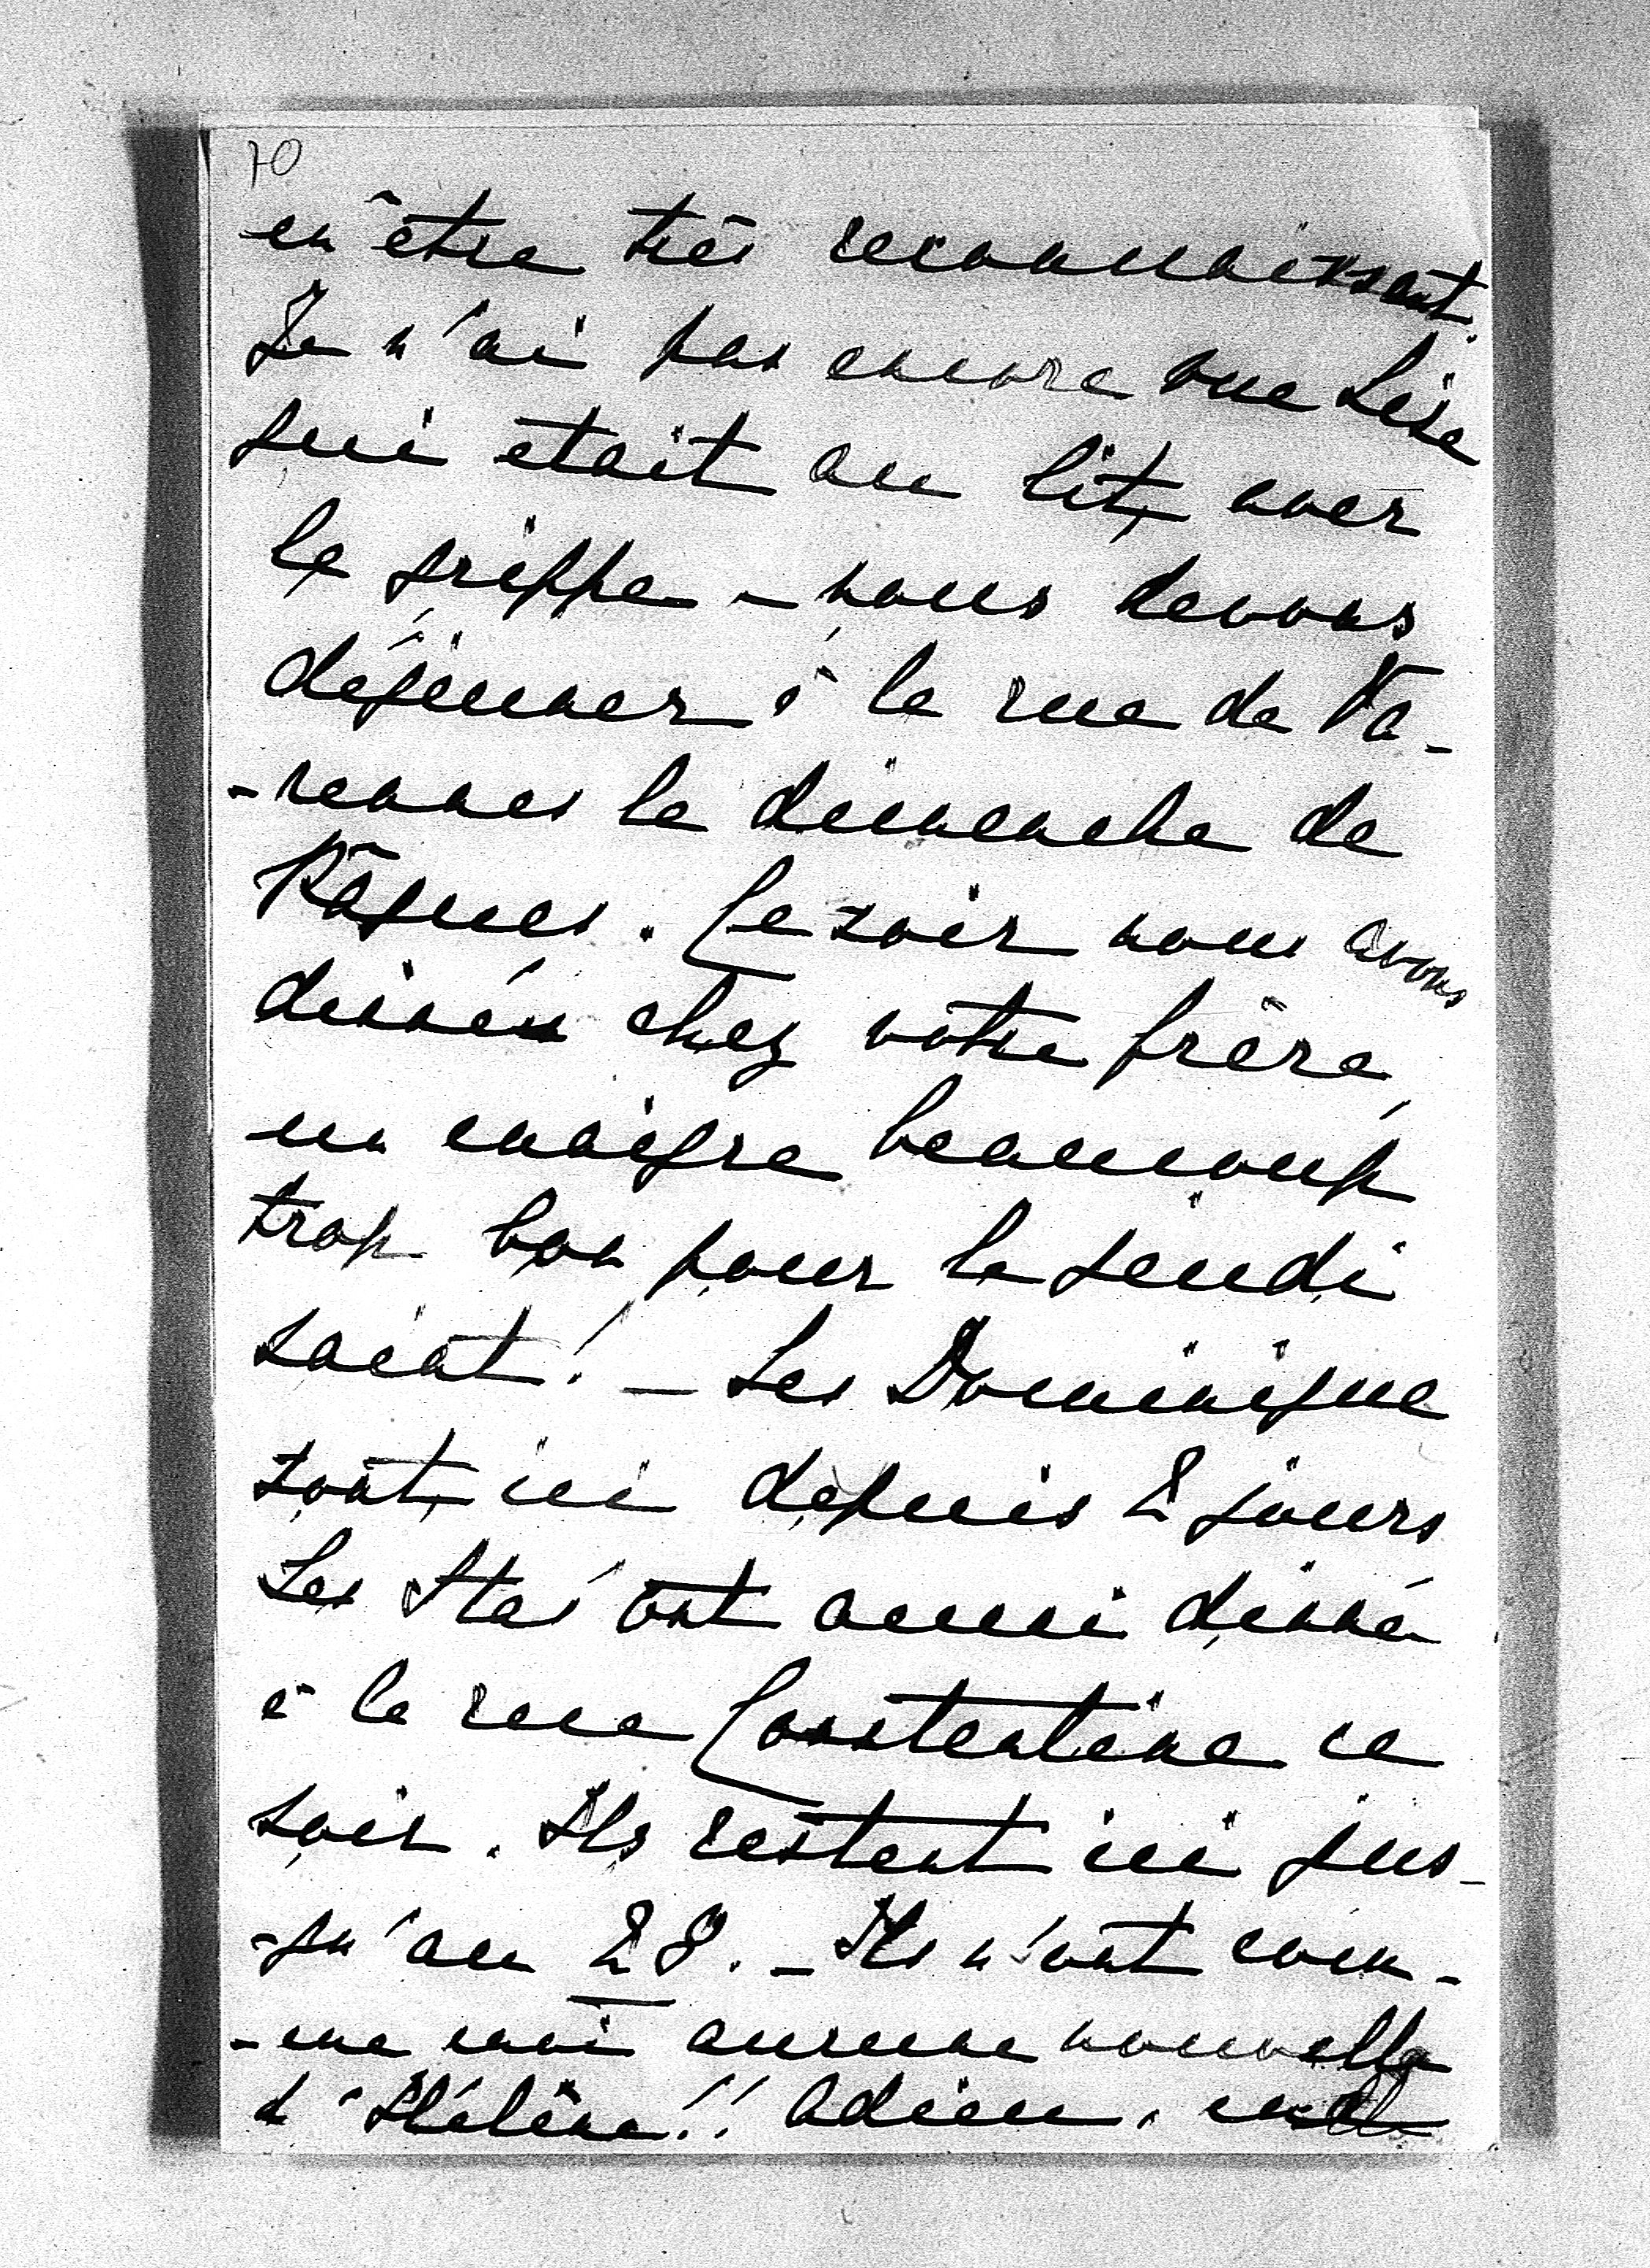 70
en être très reconnaissant.
Je n'ai pas encore vue Lise
qui etait au lit, avec
la grippe – nous devons
déjeuner à la rue de Va-
-rennes le dimanche de
Pâques. Ce soir nous avons
dinnés chez votre frère,
un maigre beaucoup
trop bon pour le jeudi
saint! – Les Dominique
sont ici depuis 2 jours
Les Sta's ont aussi dinné
à la rue Constantine ce
soir. Ils restent ici jus-
-qu'au 28. – Ils n'ont com-
-me moi aucune nouvelle
d'Hélène!! Adieu.